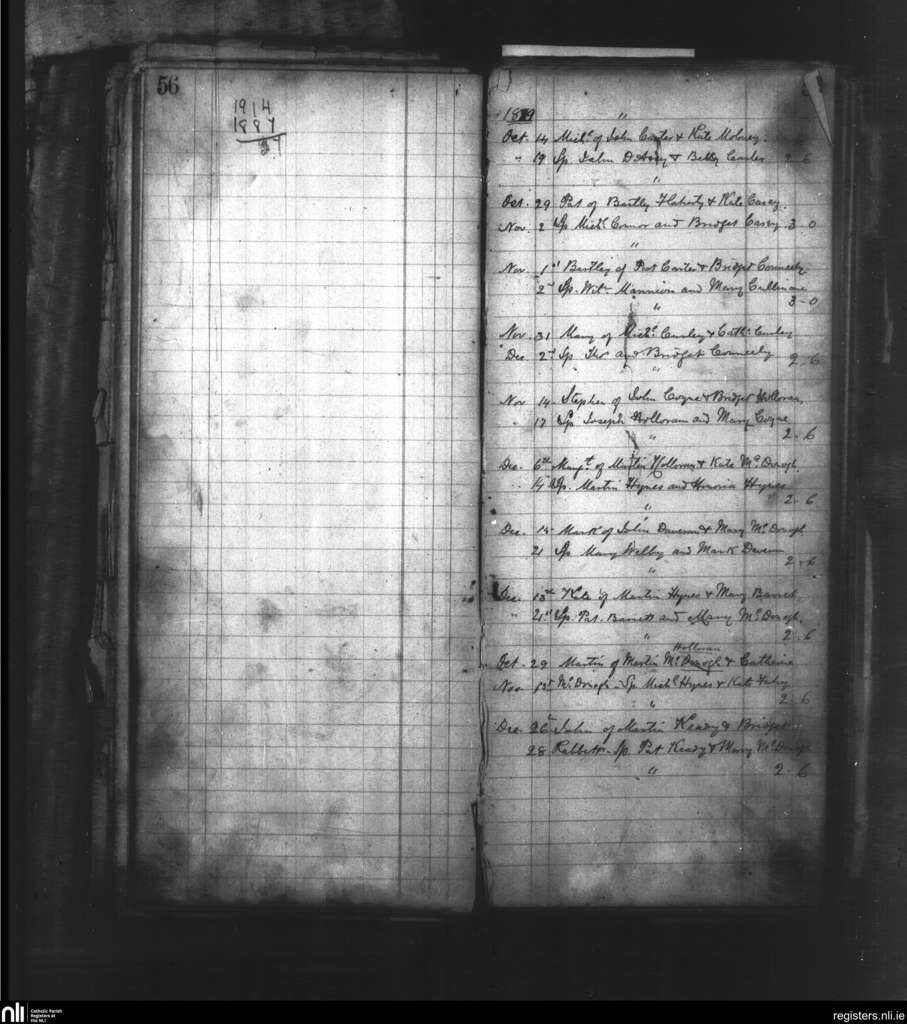 56
1914
1887
1879
"
Oct. 14 Michl of John Carter & Kate Moloney
" 19 Sp. John & Betty Carter 2-6
"
Oct. 29 Pat of Bartley Flaherty & Kate Casey.
Nov. 2 Sp Michl Connor and Bridget Casey 3-0
"
Nov. 1st Bartley of Pat Carter & Bridget Conneely
2d Sp. Wm Mannion and Mary Cullinane
" 3-0
Nov. 31 Mary of Michl Curley & Cath. Curley
Dec 2d Sp Thos and Bridget Conneely 2-6
"
Nov 14 Stephen of John Coyne & Bridget Holloran,
" 17 Sp. Joseph Holloran and Mary Coyne
" 2-6
Dec. 6th Margt of Martin Holloran & Kate McDonogh.
" 14 Sp. Martin Hynes and Honoria Hynes
" 2-6
Dec. 14 Mark of John & Mary McDonogh
21 Sp Mary Welby and Mark
" 2-6
Dec. 13th Kate of Martin Hynes & Mary Barrett
" 21st Sp. Pat. Barrett and Mary McDonogh.
" 2-6
Holloran
Oct. 29 Martin of Martin McDonogh & Catherine
Nov 13t McDonogh - Sp Michl Hynes & Kate
" 2-6
Dec. 26 John of Martin Keady & Bridget
28 Rabbitt - Sp. Pat Keady & Mary McDonogh
" 2-6
nli
Catholic Parish
Registers at
the NLI
registers.nli.ie